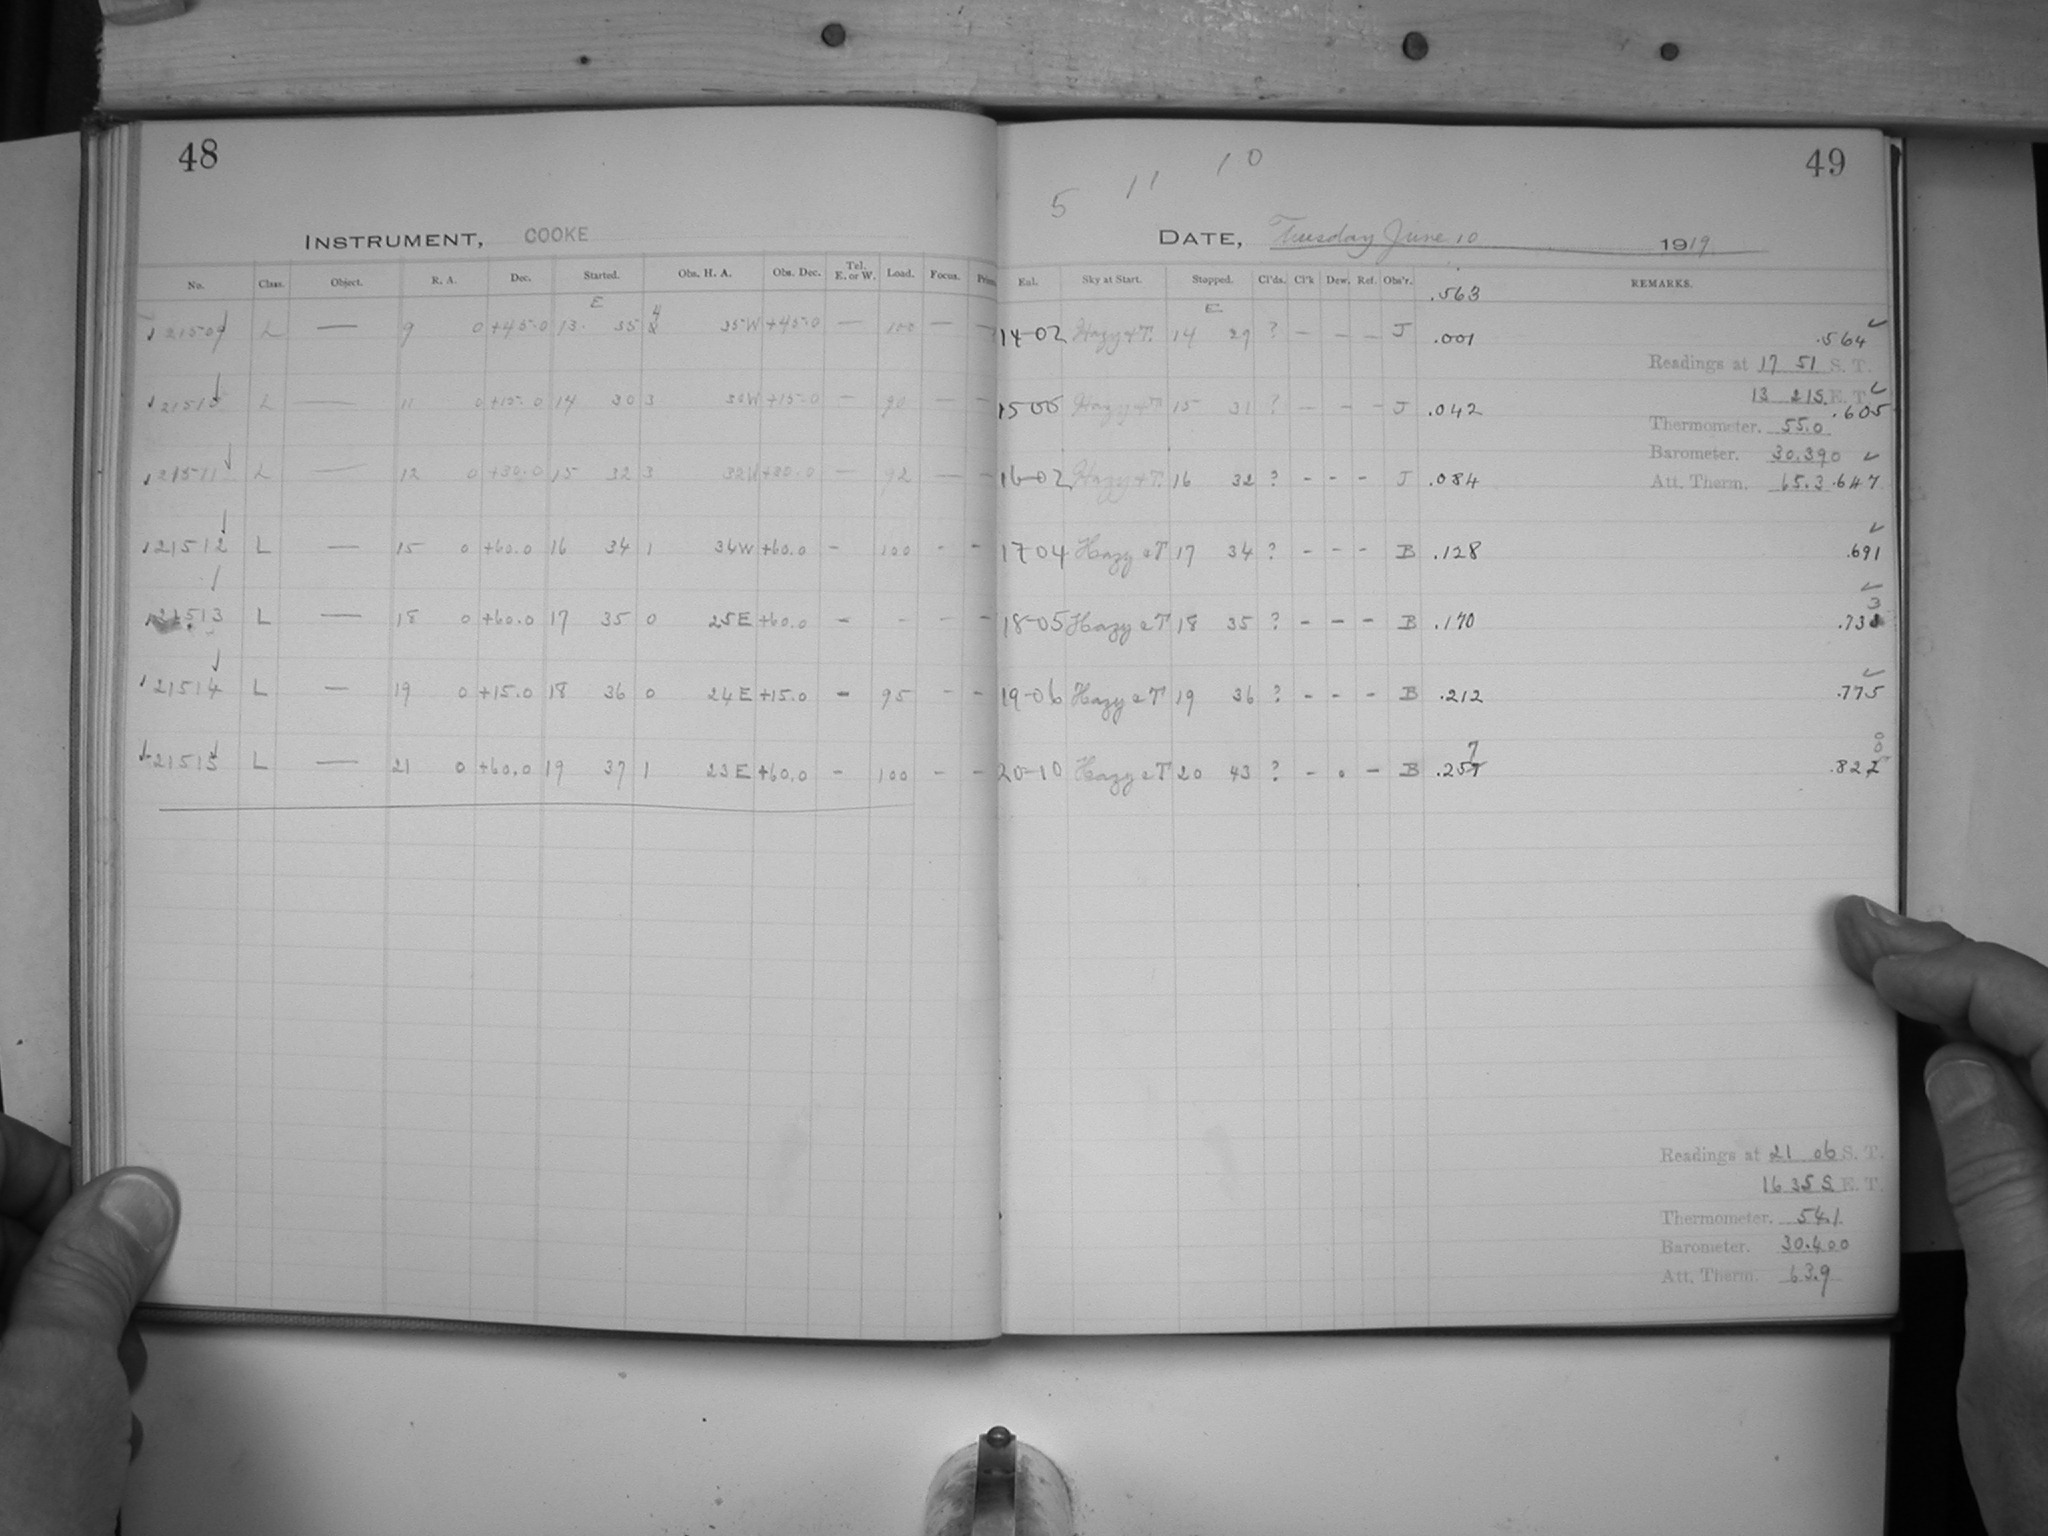 48
INSTRUMENT, COOKE
No. Class. Object. R. A. Dec. Started. Obs. H. A. Obs. Dec. Tel. E. or W. Load. Focus.
E
21509 L — 9 0 +45.0 13 35 4 35W +45.0 — 100 — —
21510 L — 11 0 +15.0 14 30 3 30W +15.0 — 90 — —
21511 L — 12 0 +30.0 15 32 3 32W +30.0 — 92 — —
21512 L — 15 0 +60.0 16 34 1 34W +60.0 - 100 - -
21513 L — 18 0 +60.0 17 35 0 25E +60.0 - - - -
21514 L — 19 0 +15.0 18 36 0 24E +15.0 - 95 - -
21515 L — 21 0 +60.0 19 37 1 23E +60.0 - 100 - -
49
5 11 10
DATE, Tuesday June 10 1919.
Eql. Sky at Start. Stopped. Cl'ds. Cl'k Dew. Ref. Obs'r. REMARKS.
.563
E
14-02 Hazy &T. 14 29 ? — — — J .001 .564
Readings at 17 51 S. T.
13 215 E. T.
15 06 Hazy &T 15 31 ? — - - J .042 .605
Thermometer. 55.0
Barometer. 30.390
16-02 Hazy &T. 16 32 ? - - - J .084 .647
Att. Therm. 65.3
17 04 Hazy &T 17 34 ? - - - B .128 .691
18-05 Hazy &T 18 35 ? - - - B .170 .733
19-06 Hazy &T 19 36 ? - - - B .212 .775
20-10 Hazy &T 20 43 ? - - B .257 .82
Readings at 21 06 S. T.
16 35 S E. T.
Thermometer. 54.1
Barometer. 30.400
Att. Therm. 63.9